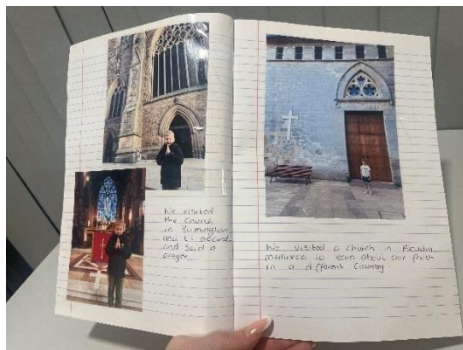 We visited
the Church
in Birmingham
and
and said a
prayer.
We visited a church in
to learn about our faith
in a different Country.